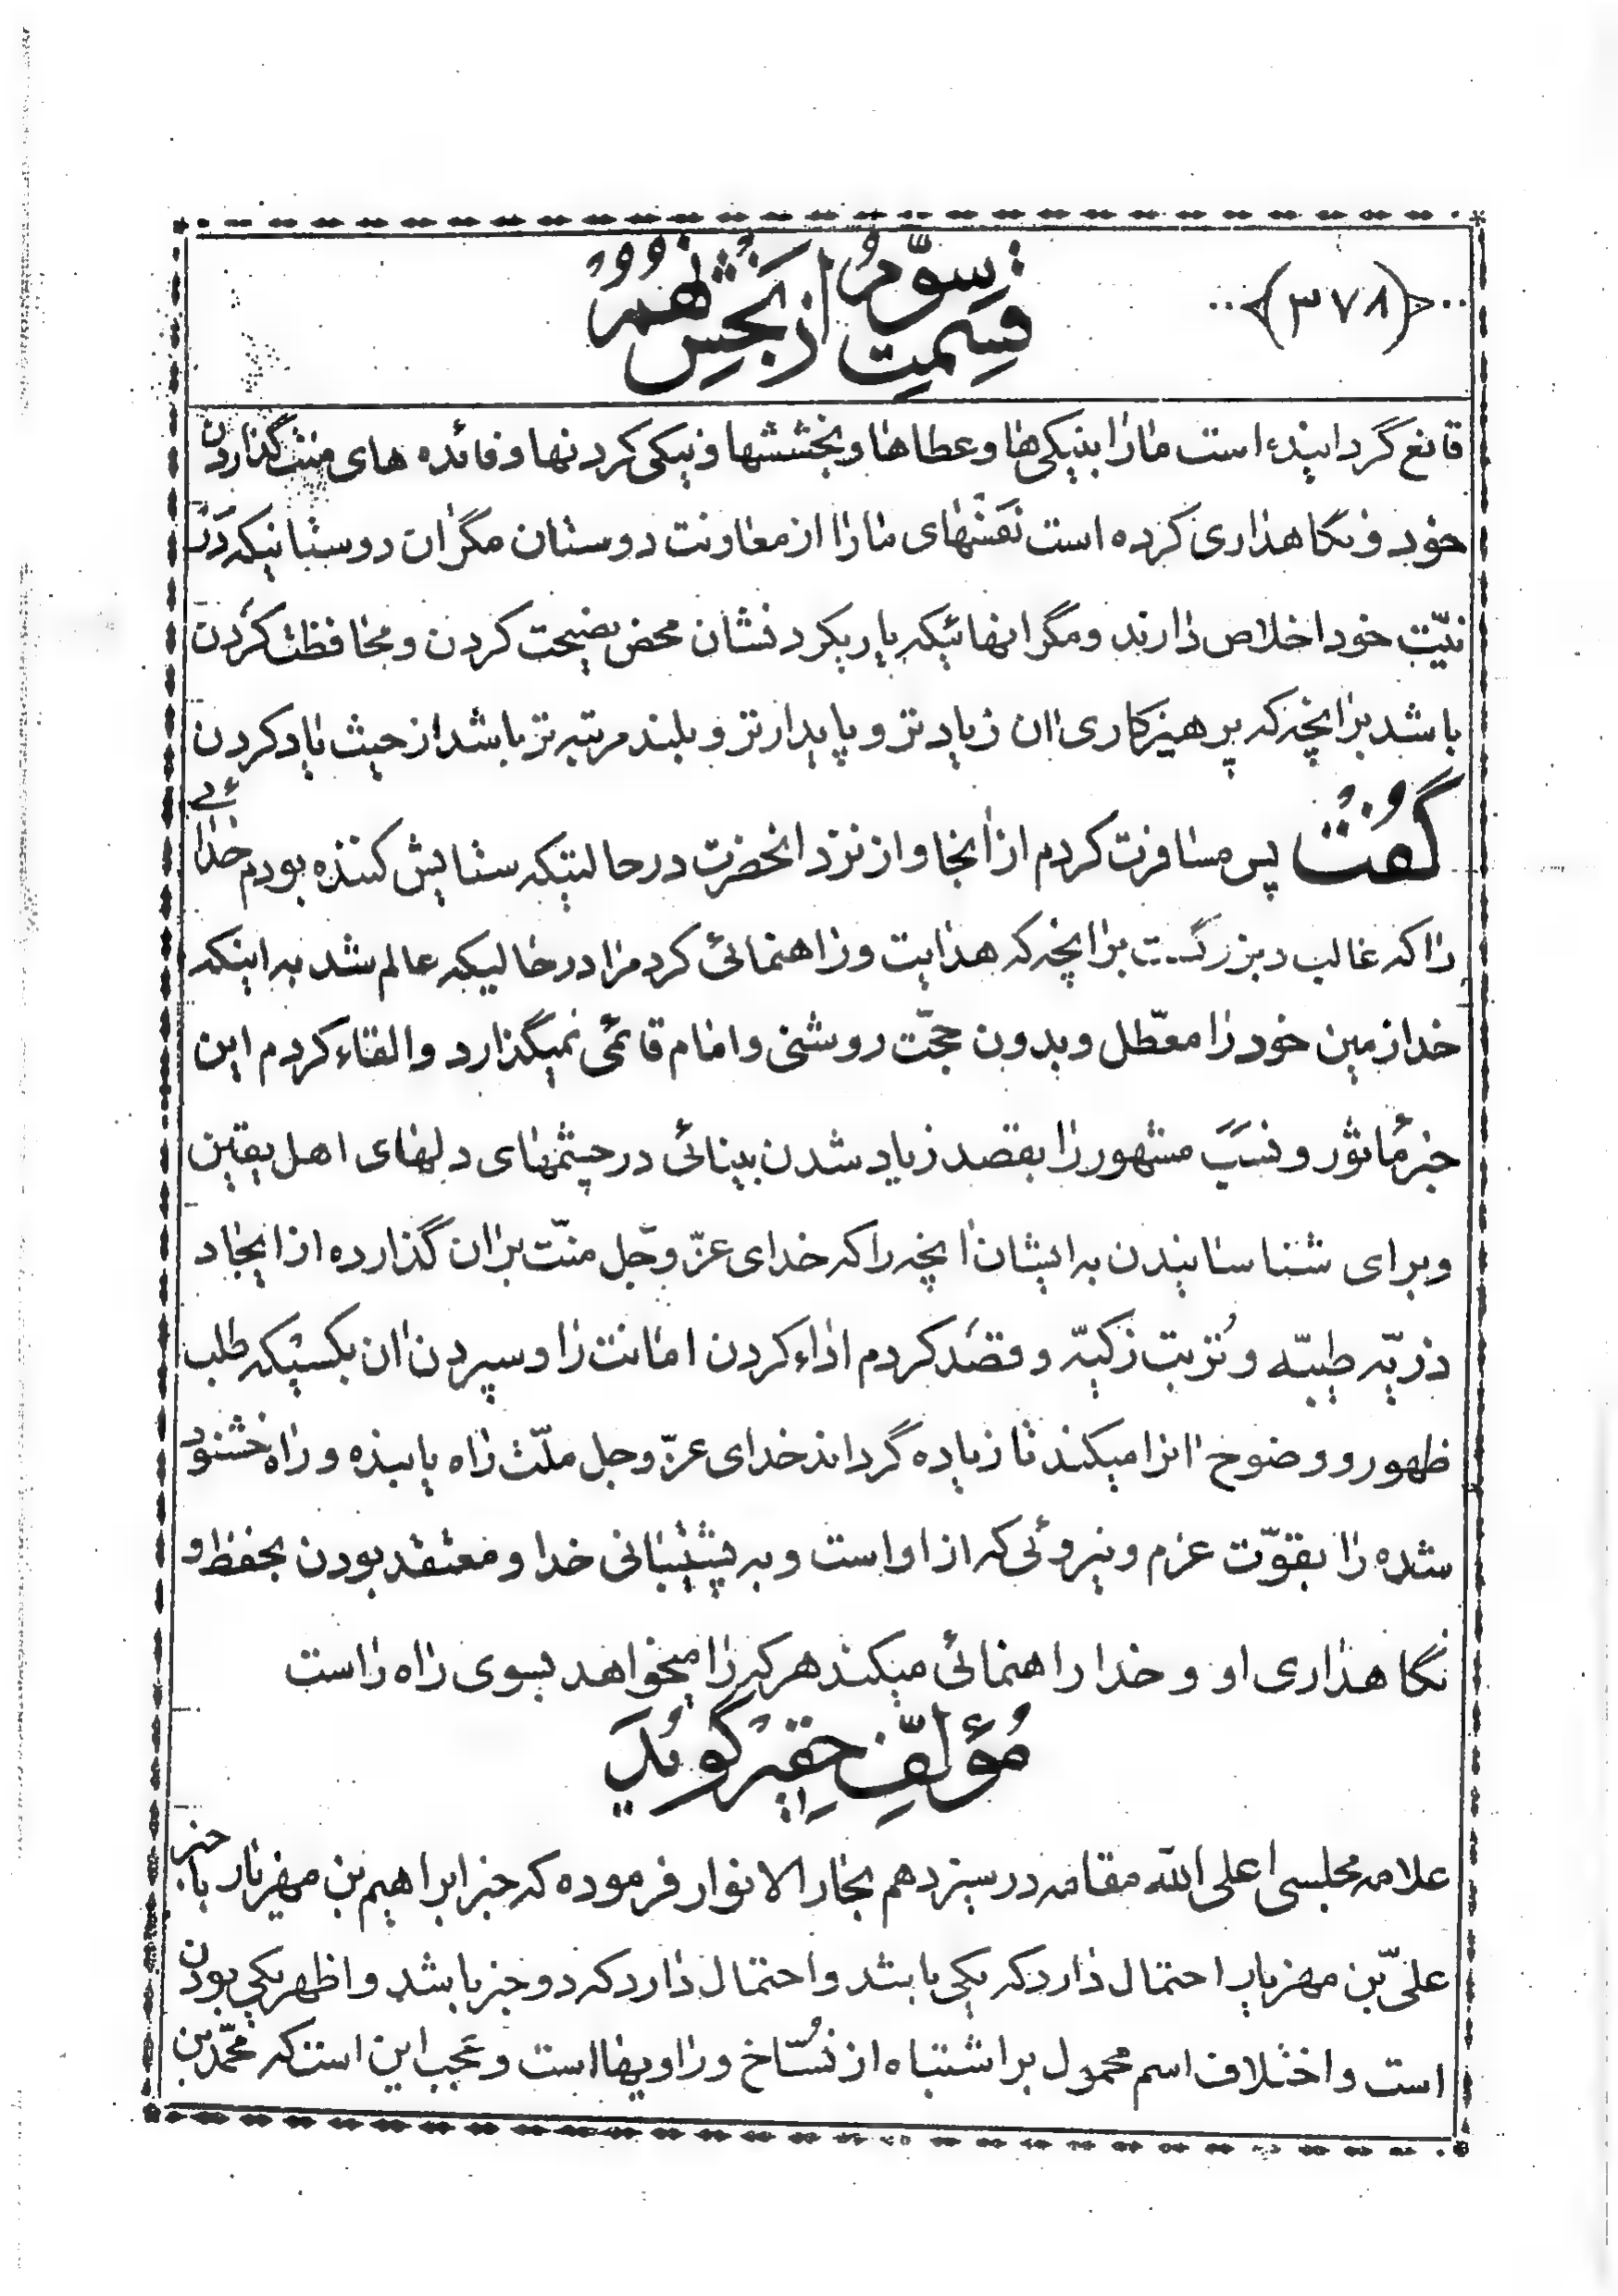 (۳۷۸)
قسمت سوّم از بخش نهم
قانع گردانیده است ما را بنیکی‌ها و عطاها و بخششها و نیکی کردنها و فائده های منت گذاردن
خود و نگاهداری کرده است نفسهای ما را از معاونت دوستان مگر ان دوستانیکه در
نیّت خود اخلاص دارند و مگر انهائیکه یاریکردنشان محض نصیحت کردن و محافظت کردن
باشد بر انچه که پرهیزکاری ان زیادتر و پایدارتر و بلند مرتبه تر باشد از حیث یاد کردن
گفت پس مسافرت کردم از انجا و از نزد انحضرت در حالتیکه ستایش کننده بودم خدائی
را که غالب و بزرگست بر انچه که هدایت و راهنمائی کرد مرا در حالیکه عالم شد به اینکه
خدا زمین خود را معطّل و بدون حجّت روشنی و امام قائمی نمیگذارد و القاء کردم این
خبر مأثور و نسب مشهور را بقصد زیاد شدن بینائی در چشمهای دلهای اهل یقین
و برای شناسانیدن به ایشان انچه را که خدای عزّ و جّل منّت بر ان گذارده از ایجاد
ذریّه طیبّه و تُربت زکیّه و قصد کردم اداء کردن امانت را و سپردن ان بکسیکه طلب
ظهور و وضوح انرا میکند تا زیاده گرداند خدای عزّ و جل ملّت راه یابنده و راه خشنود
شده را بقوّت عزم و نیروئی که از او است و به پشتیبانی خدا و معتقد بودن بحفظ و
نگاهداری او و خدا راهنمائی میکند هر که را میخواهد بسوی راه راست
مؤلّف حقیر گوید
علامه مجلسی اعلی الله مقامه در سیزدهم بحار الانوار فرموده که خبر ابراهیم بن مهزیار با خبر
علیّ بن مهزیار احتمال دارد که یکی باشد و احتمال دارد که دو خبر باشد و اظهر یکی بودن
است و اختلاف اسم محمول بر اشتباه از نُسّاخ و راویها است و عجب این است که محمّد بن